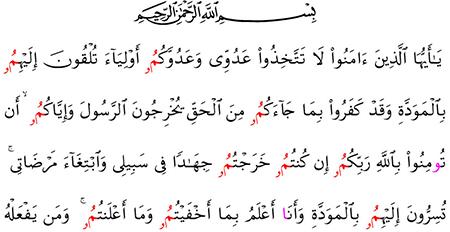 بِسْمِ ٱللَّهِ ٱلرَّحْمَٰنِ ٱلرَّحِيمِ
يَٰأَيُّهَا ٱلَّذِينَ ءَامَنُوا۟ لَا تَتَّخِذُوا۟ عَدُوِّى وَعَدُوَّكُمُۥ أَوْلِيَآءَ تُلْقُونَ إِلَيْهِمُۥ
بِٱلْمَوَدَّةِ وَقَدْ كَفَرُوا۟ بِمَا جَآءَكُمُۥ مِنَ ٱلْحَقِّ يُخْرِجُونَ ٱلرَّسُولَ وَإِيَّاكُمُۥ ۙ أَن
تُومِنُوا۟ بِٱللَّهِ رَبِّكُمُۥ إِن كُنتُمُۥ خَرَجْتُمُۥ جِهَٰدًا فِى سَبِيلِى وَٱبْتِغَآءَ مَرْضَاتِى ۚ
تُسِرُّونَ إِلَيْهِمُۥ بِٱلْمَوَدَّةِ وَأَنَا أَعْلَمُ بِمَا أَخْفَيْتُمُۥ وَمَا أَعْلَنتُمُۥ ۚ وَمَن يَفْعَلْهُ